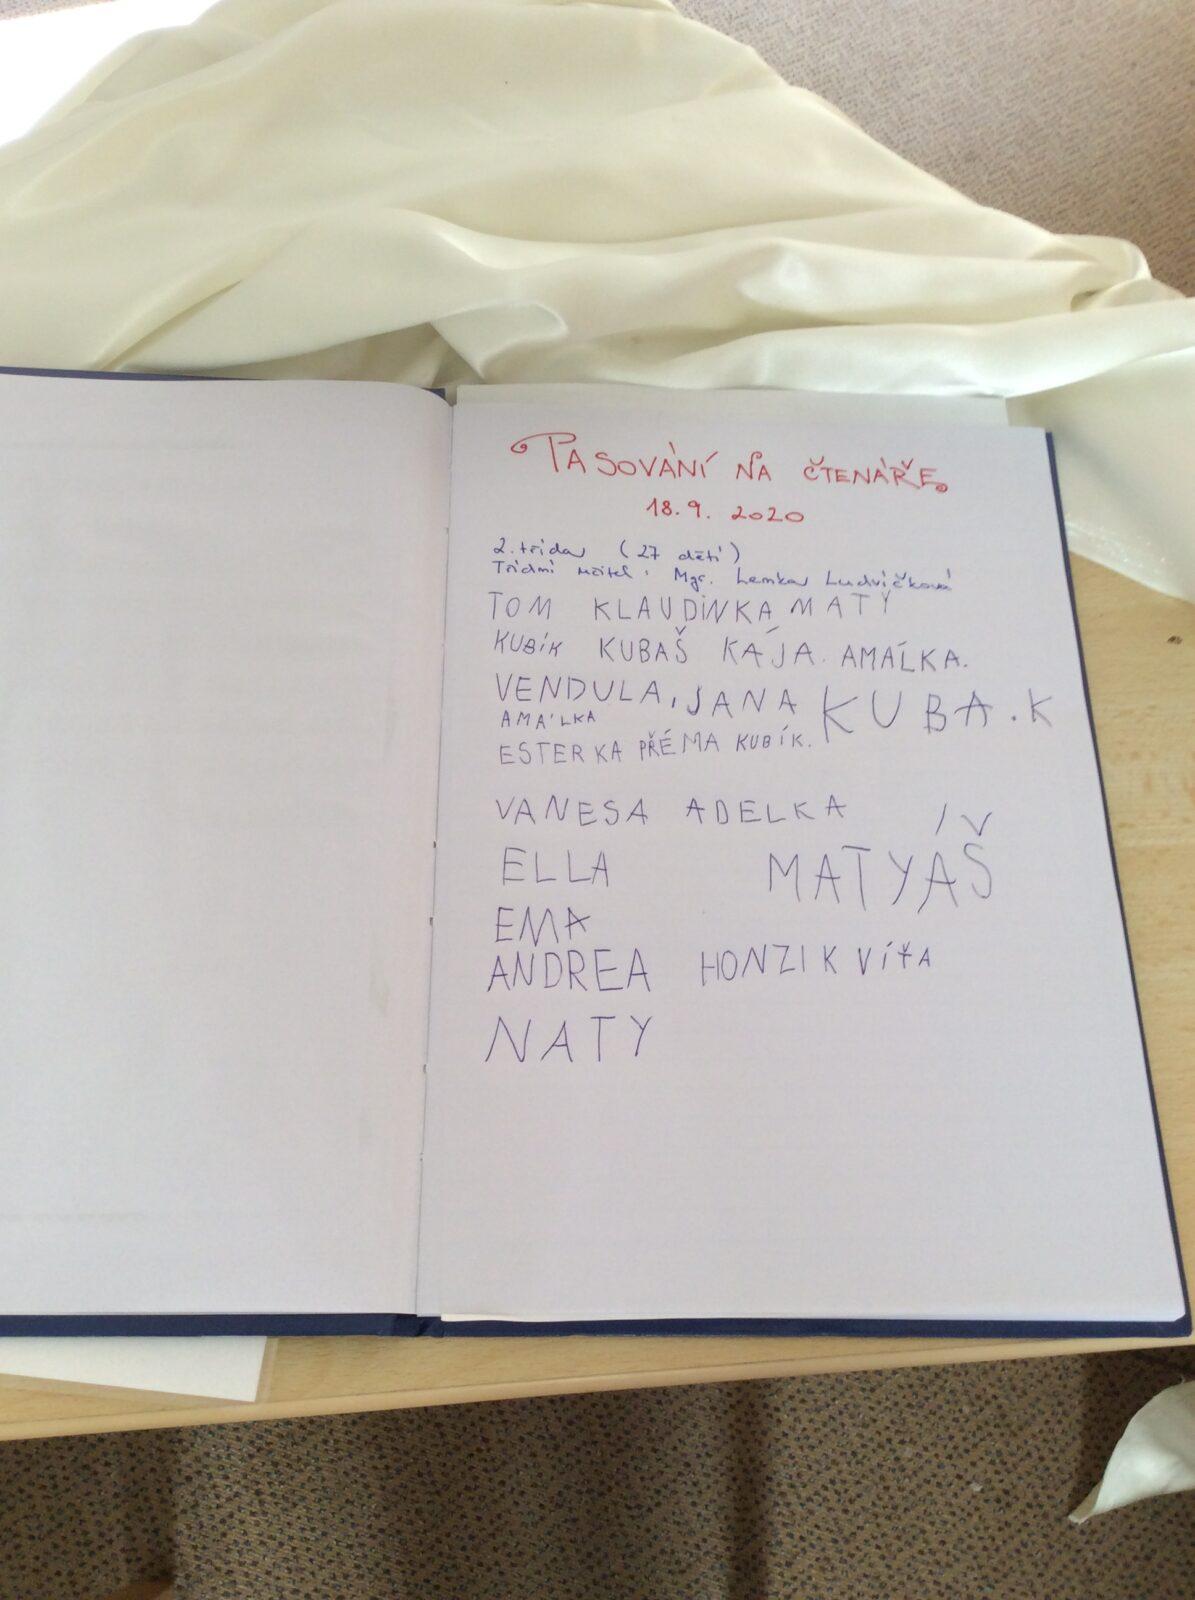 PASOVÁNÍ NA ČTENÁŘE
18. 9. 2020
2. třída (27 dětí)
Třídní učitel: Mgr. Lenka Ludvíčková
TOM KLAUDINKA MATY
KUBÍK KUBAŠ KÁJA. AMÁLKA.
VENDULA, JANA KUBA.K
AMÁLKA
ESTERKA PŘÉMA KUBÍK.
VANESA ADELKA
ELLA MATYÁŠ
EMA
ANDREA HONZIK VÍŤA
NATY